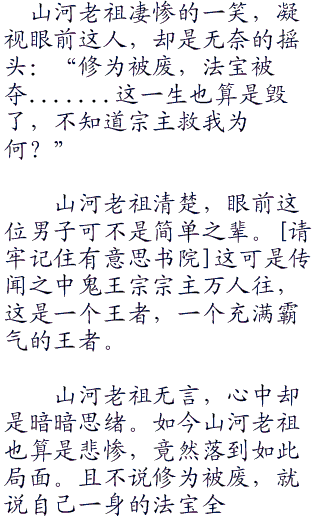 山河老祖凄惨的一笑，凝
视眼前这人，却是无奈的摇
头：“修为被废，法宝被
夺.......这一生也算是毁
了，不知道宗主救我为
何？”
山河老祖清楚，眼前这
位男子可不是简单之辈。[请
牢记住有意思书院]这可是传
闻之中鬼王宗宗主万人往，
这是一个王者，一个充满霸
气的王者。
山河老祖无言，心中却
是暗暗思绪。如今山河老祖
也算是悲惨，竟然落到如此
局面。且不说修为被废，就
说自己一身的法宝全